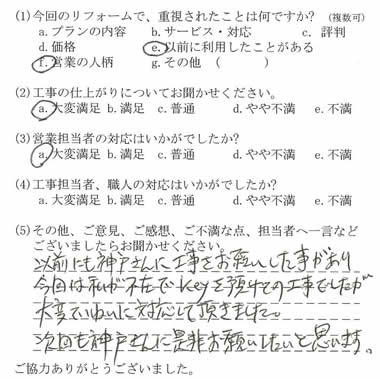 (1)今回のリフォームで、重視されたことは何ですか? (複数可)
a.プランの内容 b.サービス・対応 c. 評判
d.価格 e.以前に利用したことがある
f.営業の人柄 g.その他 ( )
(2)工事の仕上がりについてお聞かせください。
a.大変満足 b.満足 c.普通 d.やや不満 e.不満
(3)営業担当者の対応はいかがでしたか?
a.大変満足 b.満足 c.普通 d.やや不満 e.不満
(4)工事担当者、職人の対応はいかがでしたか?
a.大変満足 b.満足 c.普通 d.やや不満 e.不満
(5)その他、ご意見、ご感想、ご不満な点、担当者へ一言など
ございましたらお聞かせください。
以前にも神戸さんに工事をお願いした事があり
今回は私が不在でKeyを預けての工事でしたが
大変ていねいに対応して頂きました。
次回も神戸さんに是非お願いしたいと思います。
ご協力ありがとうございました。